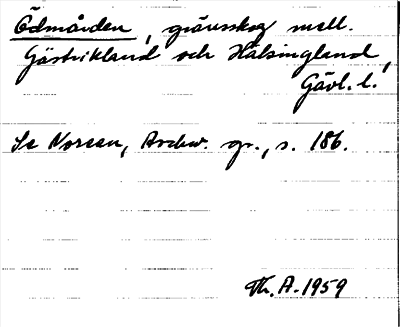 Ödmården, gränsskog mell.
Gästrikland och Hälsingland,
Gävl. l.
Se Noreen, Ardw. gr., s. 186.
Th. A. 1959